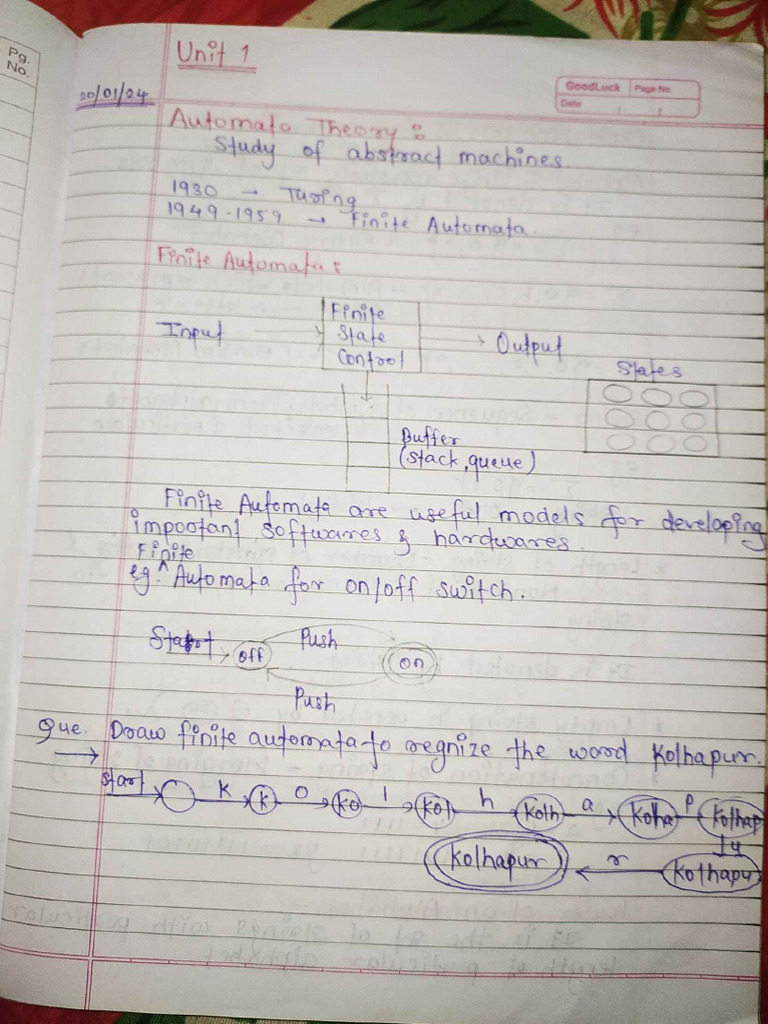 Pg.
No.
Unit 1
20/01/24
GoodLuck Page No.
Date
Automata Theory :
Study of abstract machines.
1930 → Turing
1949-1959 → Finite Automata.
Finite Automata :
Finite
Input → State → Output
Control
States
Buffer
(stack, queue)
Finite Automata are useful models for developing
impootant softwares & hardwares.
Finite
eg. ^ Automata for on/off switch.
Start → off Push on
Push
Que. Draw finite automata to regnize the word Kolhapur.
→
start k k o ko l kol h kolh a kolha p kolhap
u
kolhapur r kolhapu